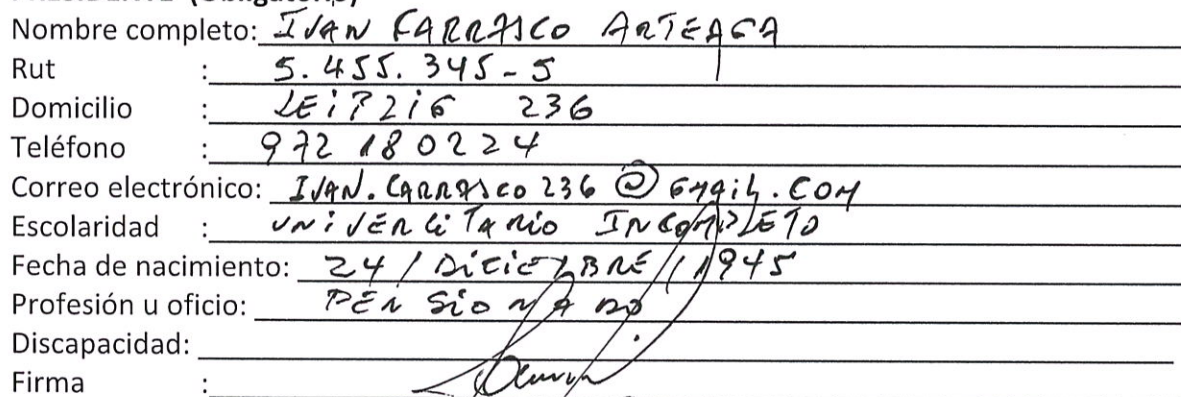 Nombre completo: IVAN CARRASCO ARTEAGA
Rut : 5.455.345-5
Domicilio : LEIPZIG 236
Teléfono : 972180224
Correo electrónico: IVAN.CARRASCO236@GMAIL.COM
Escolaridad : UNIVERSITARIO INCOMPLETO
Fecha de nacimiento: 24 / DICIEMBRE / 1945
Profesión u oficio: PENSIONADO
Discapacidad:
Firma :